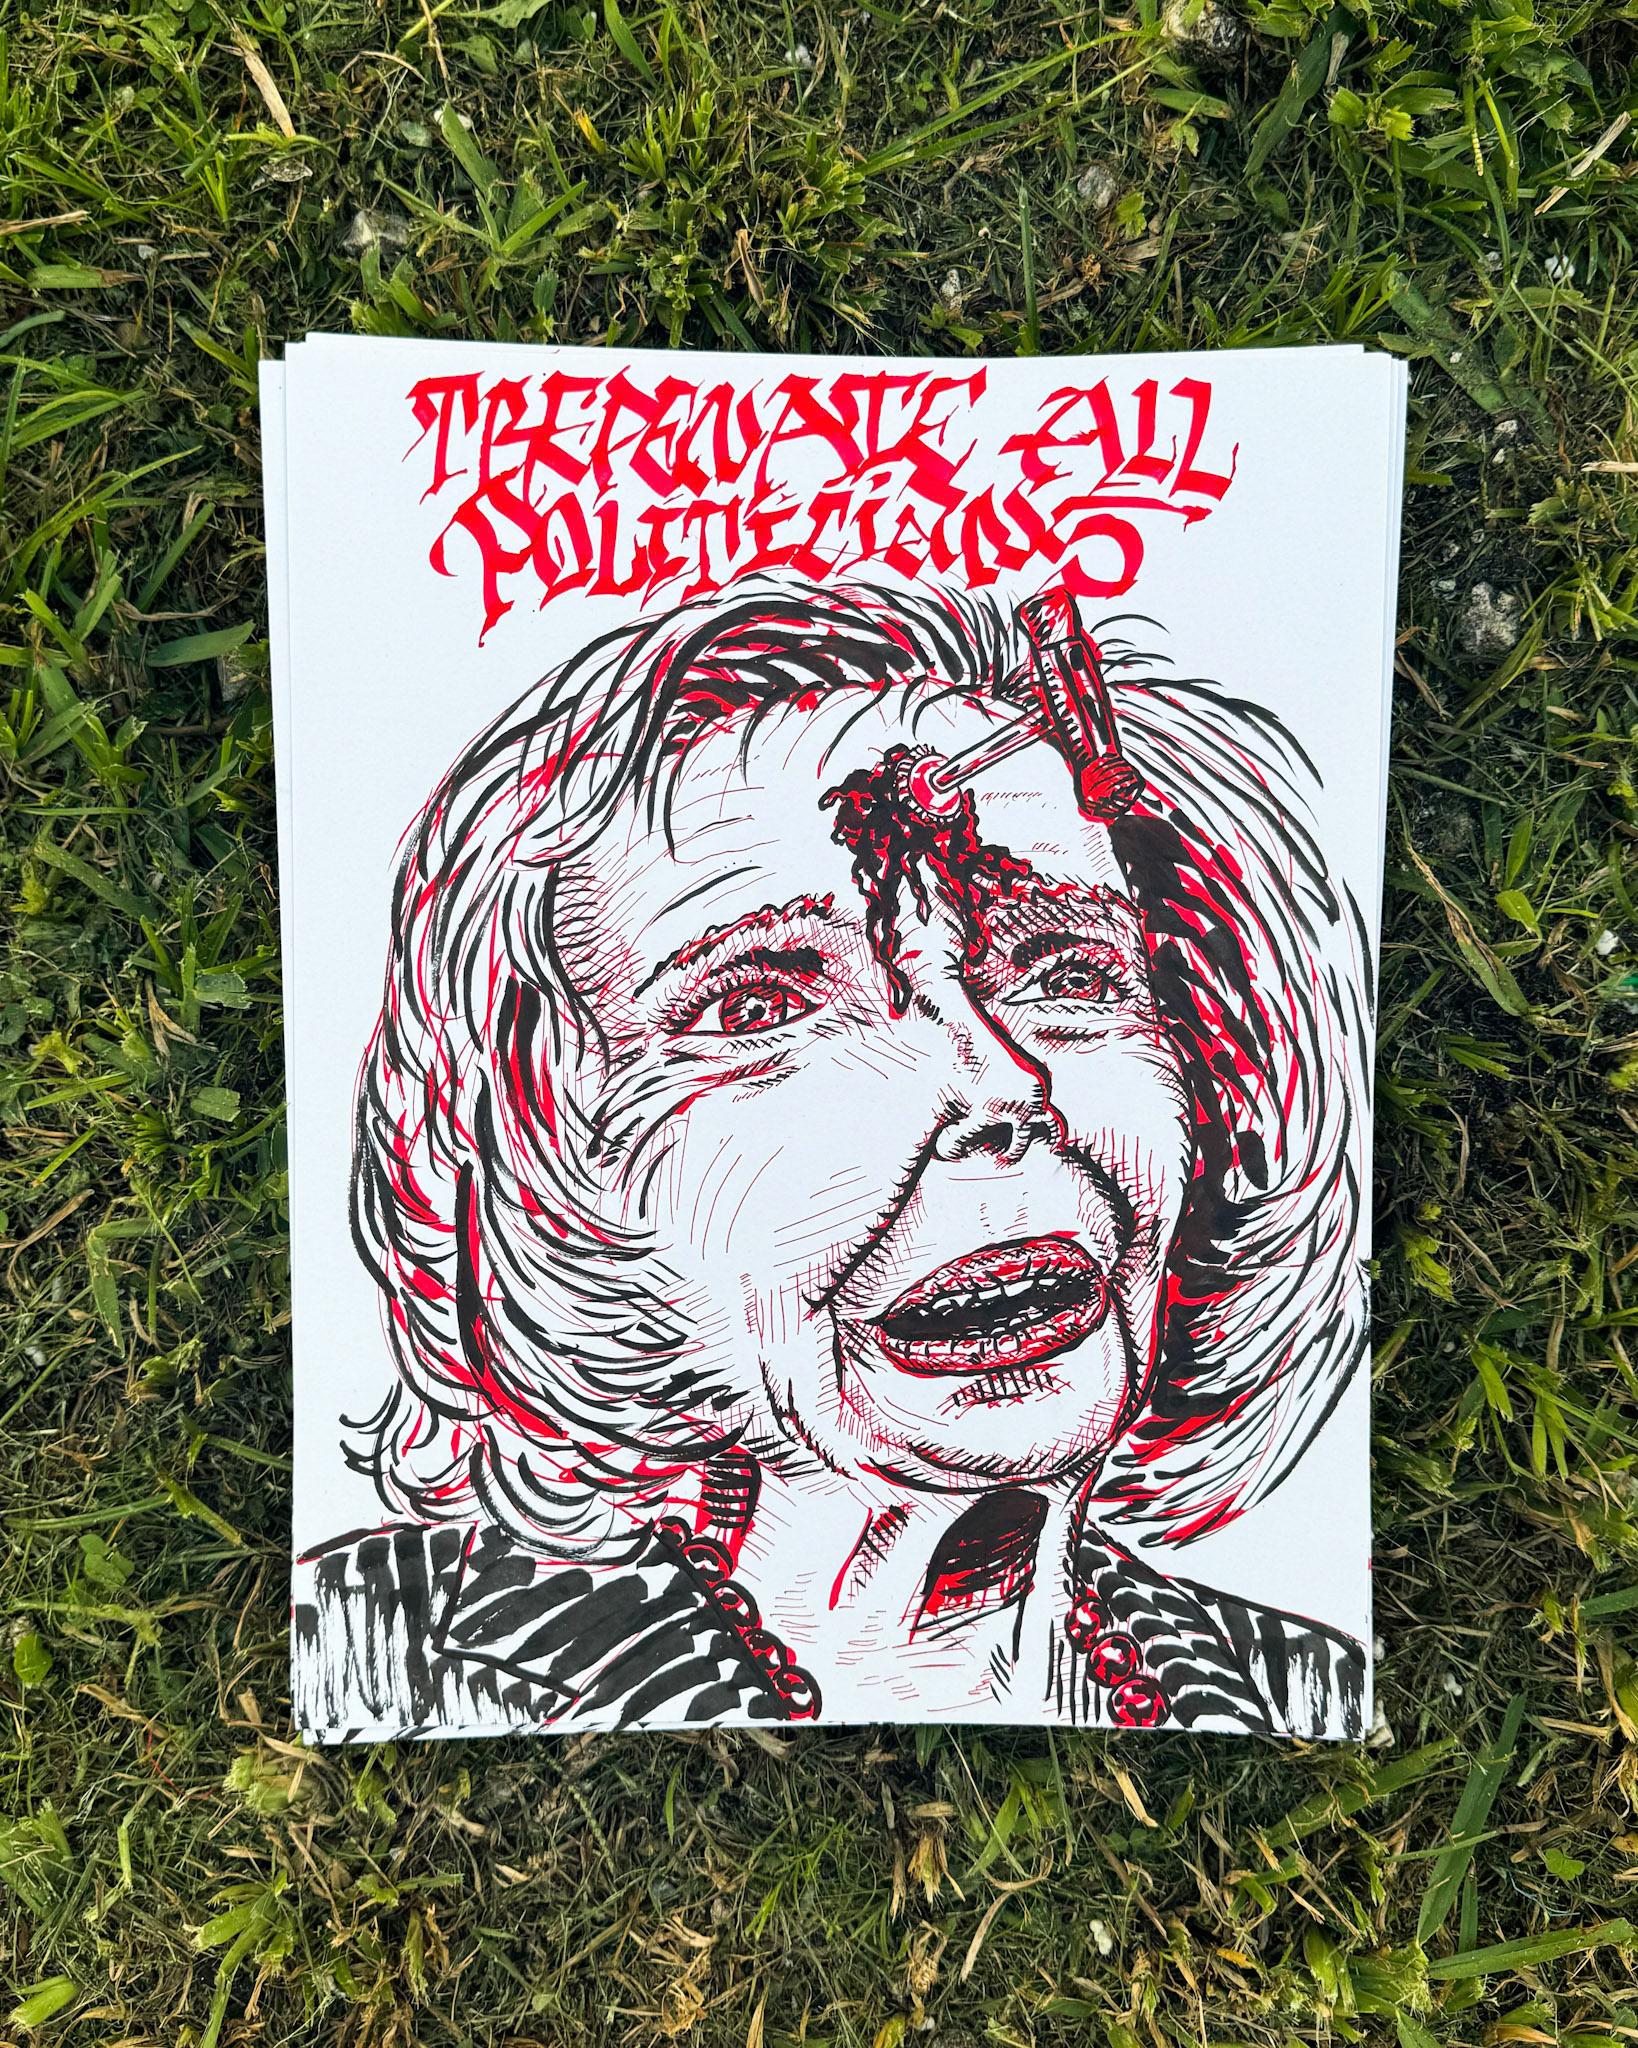 TREPENATE ALL
POLITICIANS